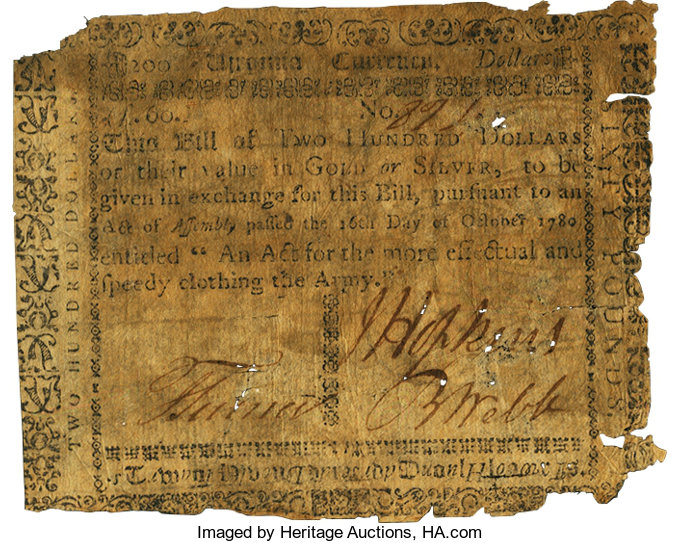 200 Virginia Currency. Dollars
£.60. No 891
This Bill of TWO HUNDRED DOLLARS
or their value in GOLD or SILVER, to be
given in exchange for this Bill, purſuant to an
Act of Aſſembly paſſed the 16th Day of October 1780
entitled “ An Act for the more effectual and
ſpeedy clothing the Army.”
J Hopkins
B Webb
TWO HUNDRED DOLLARS.
SIXTY POUNDS.
Imaged by Heritage Auctions, HA.com